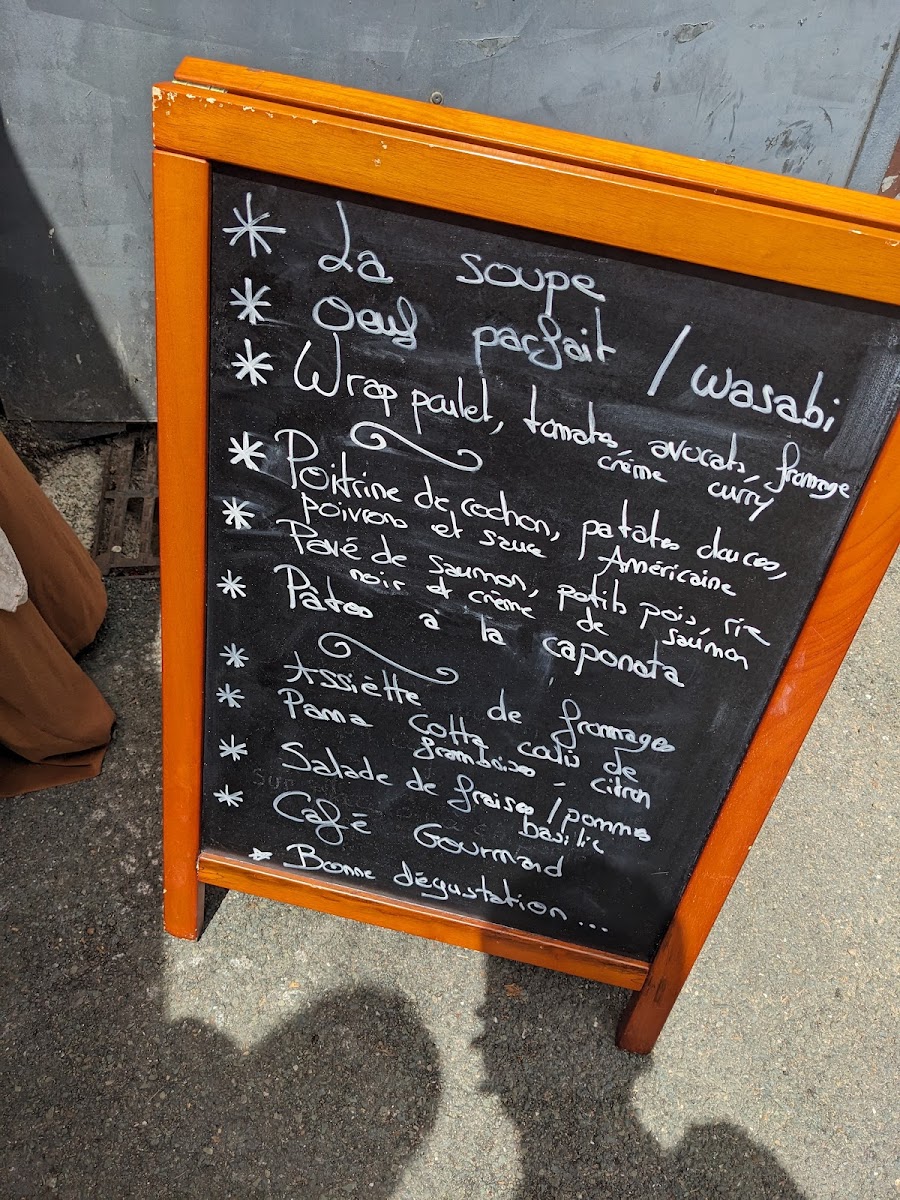 * La soupe
* Oeuf parfait / wasabi
* Wrap poulet, tomates, avocats, fromage
crème curry
* Poitrine de cochon, patates douces,
poivrons et sauce Américaine
* Pavé de saumon, petits pois, riz
noir et crème de saumon
* Pâtes à la caponata
* Assiette de fromages
* Pana Cotta coulis de
framboises, citron
* Salade de fraises / pommes
basilic
* Café Gourmand
* Bonne dégustation...